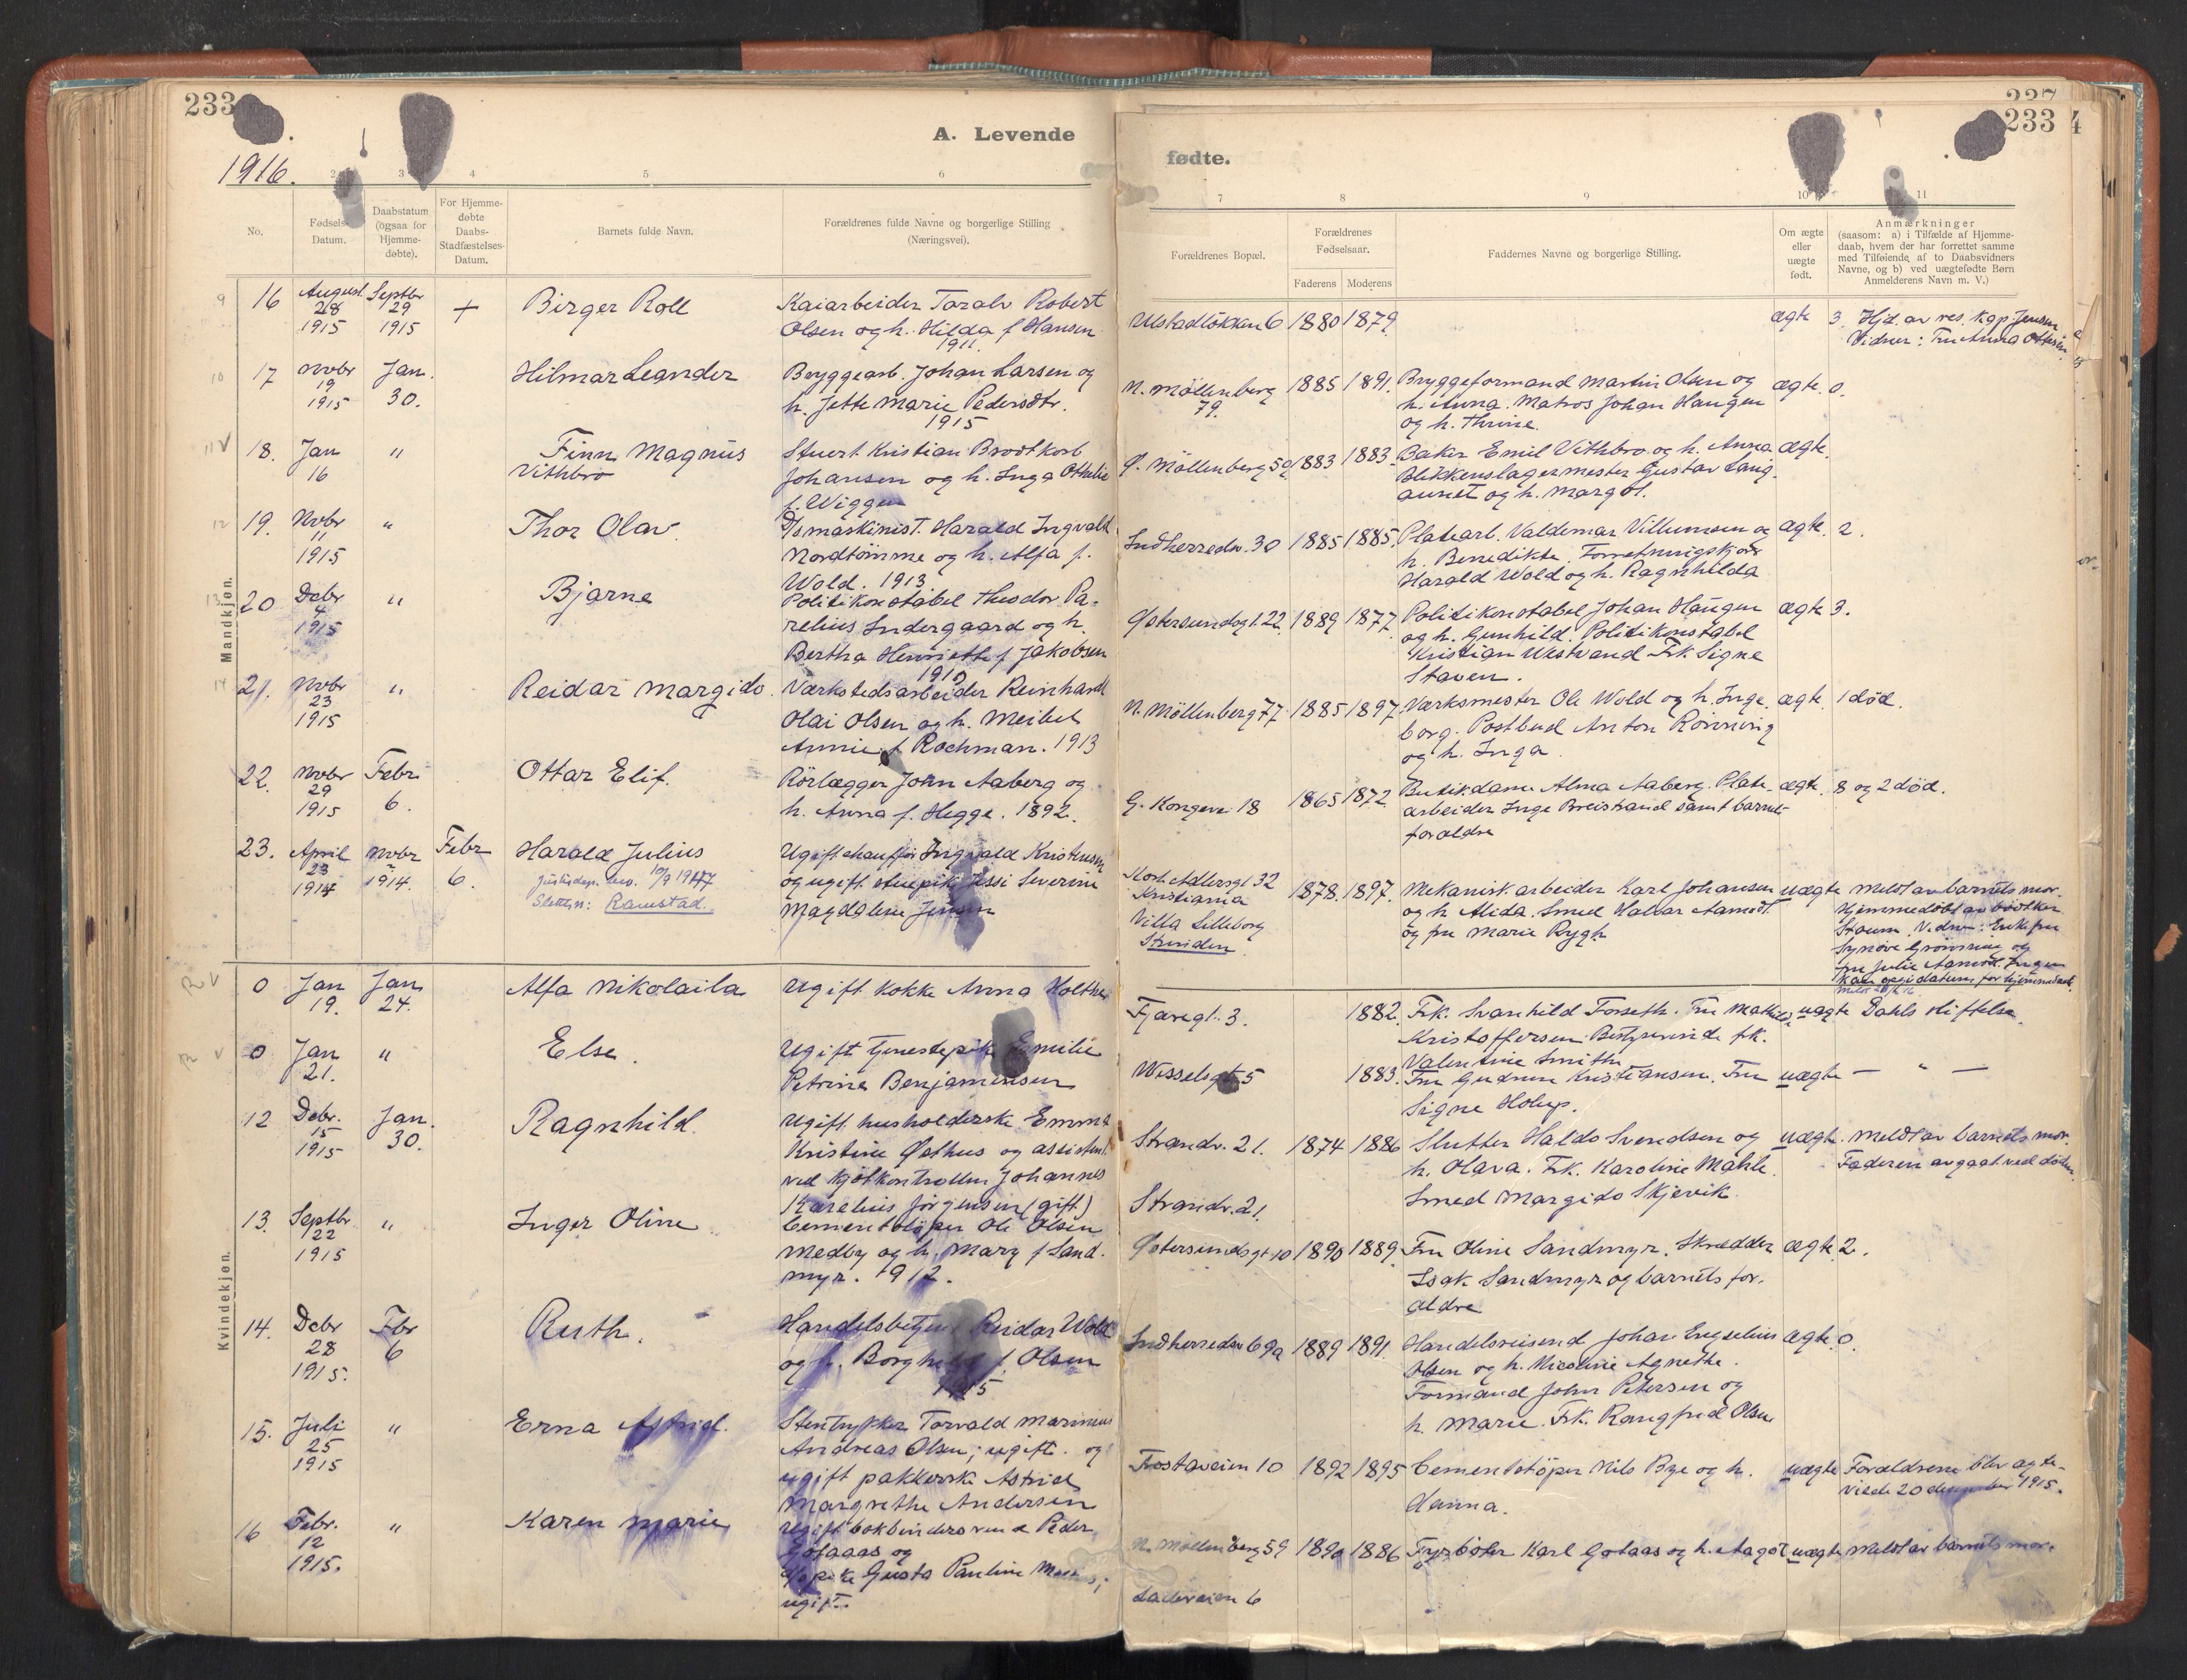 233
A. Levende
1916.
2 3 4 5 6
No.
Fødsels-
Datum.
Daabstatum
(ogsaa for
Hjemme-
døbte).
For Hjemme-
døbte
Daabs-
Stadfæstelses-
Datum.
Barnets fulde Navn.
Forældrenes fulde Navne og borgerlige Stilling
(Næringsvei).
Mandkjøn.
9 16 August Septbr + Birger Roll Kaiarbeider Taralv Robert
28 29 Olsen og h. Hilda f Hansen
1915 1915 1911.
10 17 Novbr Jan. Hilmar Leander Bryggearb. Johan Larsen og
19 30. h. Jette Marie Pedersdtr.
1915 1915
11 V 18. Jan " Finn Magnus Stuert Kristian Brodtkorb
16 Vithbro Johansen og h. Inga Othelie
f. Wiggen
12 19. Novbr " Thor Olav. D/s maskinist. Harald Ingvald
11 Nordtømme og h. Alfa f.
1915 Wold. 1913
13 20 Debr " Bjarne Politikonstabel Theodor Pa-
4 relius Indergaard og h.
1915 Bertha Henriette f Jakobsen
1910
14 21. Novbr " Reidar Margido. Værkstedsarbeider Reinhardt
23 Olai Olsen og h. Meibel
1915 Annie f. Rochman. 1913
22. Novbr Febr. Ottar Elif. Rörlægger John Aaberg og
29 6. h. Anna f. Hegge. 1892.
1915
23. April Novbr Febr Harald Julius Ugift chauffør Ingvald Kristensen
23 2 6. Justisdep. bev. 10/9 1947 og ugift stuepik Jessi Severine
1914 1914. Slettesn: Ramstad. Magdalene Jensen
Kvindekjøn.
R V 0 Jan Jan Alfa Nikolaila Ugift kokke Anna Holthe
19. 24.
R V 0 Jan " Else. Ugift tjenestepike Emilie
21. Petrine Benjaminsen
12 Debr. Jan. Ragnhild. Ugift husholderske Emma
15 30. Kristine Østhus og assistent
1915 ved kjøtkontrollen Johannes
Karelius Jørgensen (gift)
13. Septbr " Inger Oline Cementstøper Ole Olsen
22 Medby og h. Mary f Sand-
1915 myr. 1912.
14. Debr Fbr Ruth. Handelsbetjent Reidar Wold
28 6 og h. Borghild f. Olsen
1915. 1915
15. Juli " Erna Astrid. Stentrykker Torvald Marinius
25 Andreas Olsen; ugift. og
1915 ugift pakkerske Astrid
Margrethe Andersen
16 Febr. " Karen Marie Ugift bokbindersvend Peder
12 Gotaas og
1915. pike Gusta Pauline
ugift.
237
233 4
fødte.
7 8 9 10 11
Forældrenes Bopæl.
Forældrenes
Fødselsaar.
Faderens Moderens
Faddernes Navne og borgerlige Stilling.
Om ægte
eller
uægte
født.
Anmærkninger
(saasom: a) i Tilfælde af Hjemme-
daab, hvem der har forrettet samme
med Tilføiende af to Daabsvidners
Navne, og b) ved uægtefødte Børn
Anmelderens Navn m. V.)
Ulstadløkken 6 1880 1879 ægte 3. Hjd. av res. kap. Jensen.
Vidner: Fru Anna Ottesen
N. Möllenberg 1885 1891. Bryggeformand Martin Olsen og ægte. 0.
79. h. Anna. Matros Johan Haugen
og h. Thrine.
Ø. Möllenberg 59 1883 1883. Baker Emil Vithbro og h. Anna ægte.
Blikkenslagermester Gustav Laug-
aunet og h. Margot.
Indherredsv. 30 1885 1885. Platearb. Valdemar Villumsen og ægte. 2.
h. Benedikte.
Harald Wold og h. Ragnhilda
Østersundsgt. 22. 1889 1877. Politikonstabel Johan Haugen ægte 3.
og h. Gunhild. Politikonstabel
Kristian Vestrand Frk. Signe
Staven.
N. Möllenberg 77. 1885 1897. Værksmester Ole Wold og h. Inge- ægte. 1 død.
borg. Postbud Anton Rönning
og h. Inga.
G. Kongevei 18 1865 1872 Butikdame Alma Aaberg. Plate- ægte. 8 og 2 død.
arbeider Inge Breistrand samt barnets
forældre
Kort Adlersgt 32 1878. 1897. Mekanisk arbeider Karl Johansen uægte Meldt av barnets mor.
Kristiania og h Alida. Smed Halvar Aamodt Hjemmedøbt av bødtker
Villa Lilleborg og fru Marie Rygh Staum. Vidner: Enkefru
Strinden. Synöve Grönning og
fru Julie Aamodt. Ingen
kan opgi datum for hjemmedaab.
Fjæregt. 3. 1882. Frk. Svanhild Forseth. Fru Mathilde uægte Dahls stiftelse.
Kristoffersen. Bestyrerinde frk.
Valentine Smith
Wesselsgt. 5 1883. Fru Gudrun Kristiansen. Fru uægte — " —
Signe Holup.
Strandv. 21. 1874 1886 Slutter Haldo Svendsen og uægte. Meldt av barnets mor.
h. Olava. Frk. Karoline Mæhle. Faderen avgaat ved døden.
Smed Margido Skjervik.
Strandv. 21.
Østersundsgt 10 1890 1889. Fru Oline Sandmyr. Skrædder ægte 2.
Isak Sandmyr og barnets for-
ældre
Indherredsv 69a 1889 1891. Handelsreisend Johan Engselius ægte. 0.
Olsen og h. Nicoline Agnethe.
Formand John Petersen og
h. Marie. Frk. Rangfrid Olsen
Frostaveien 10 1892 1895 Cementstöper Nils Bye og h. uægte Forældrene blev ægte-
Hanna. viede 20 desember 1915.
N. Möllenberg 59 1890 1886 Fyrböter Karl Gotaas og h. Aagot uægte Meldt av barnets mor.
Ladeveien 6